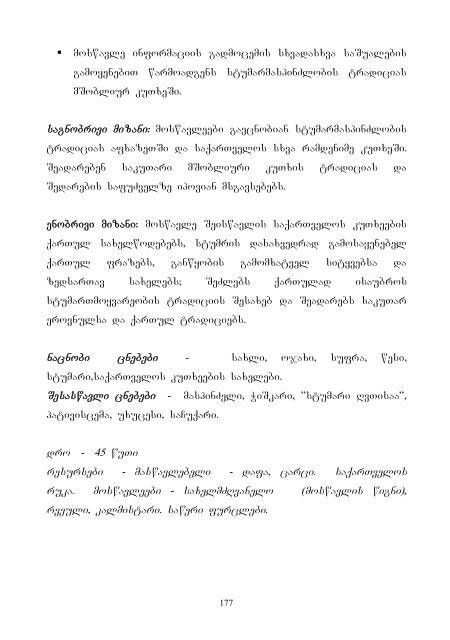 ▪ მოსწავლე ინფორმაციის გადმოცემის სხვადასხვა საშუალების
გამოყენებით წარმოადგენს სტუმარმასპინძლობის ტრადიციას
მშობლიურ კუთხეში.
საგნობრივი მიზანი: მოსწავლეები გაეცნობიან სტუმარმასპინძლობის
ტრადიციას აფხაზეთში და საქართველოს სხვა რამდენიმე კუთხეში.
შეადარებენ საკუთარი მშობლიური კუთხის ტრადიციას და
შედარების საფუძველზე იპოვიან მსგავსებებს.
ენობრივი მიზანი: მოსწავლე შეისწავლის საქართველოს კუთხეების
ქართულ სახელწოდებებს, სტუმრის დასახვედრად გამოსაყენებელ
ქართულ ფრაზებს, განწყობის გამომხატველ სიტყვებსა და
ზედსართავ სახელებს; შეძლებს ქართულად ისაუბროს
სტუმართმოყვარეობის ტრადიციის შესახებ და შეადარებს საკუთარ
ეროვნულსა და ქართულ ტრადიციებს.
ნაცნობი ცნებები - სახლი, ოჯახი, სუფრა, წესი,
სტუმარი,საქართველოს კუთხეების სახელები.
შესასწავლი ცნებები - მასპინძელი, ჭიშკარი, "სტუმარი ღვთისაა",
პატივისცემა, უხუცესი, საჩუქარი.
დრო - 45 წუთი
რესურსები - მასწავლებელი - დაფა, ცარცი. საქართველოს
რუკა. მოსწავლეები - სახელმძღვანელო (მოსწავლის წიგნი),
რვეული, კალმისტარი. საწერი ფურცლები.
177